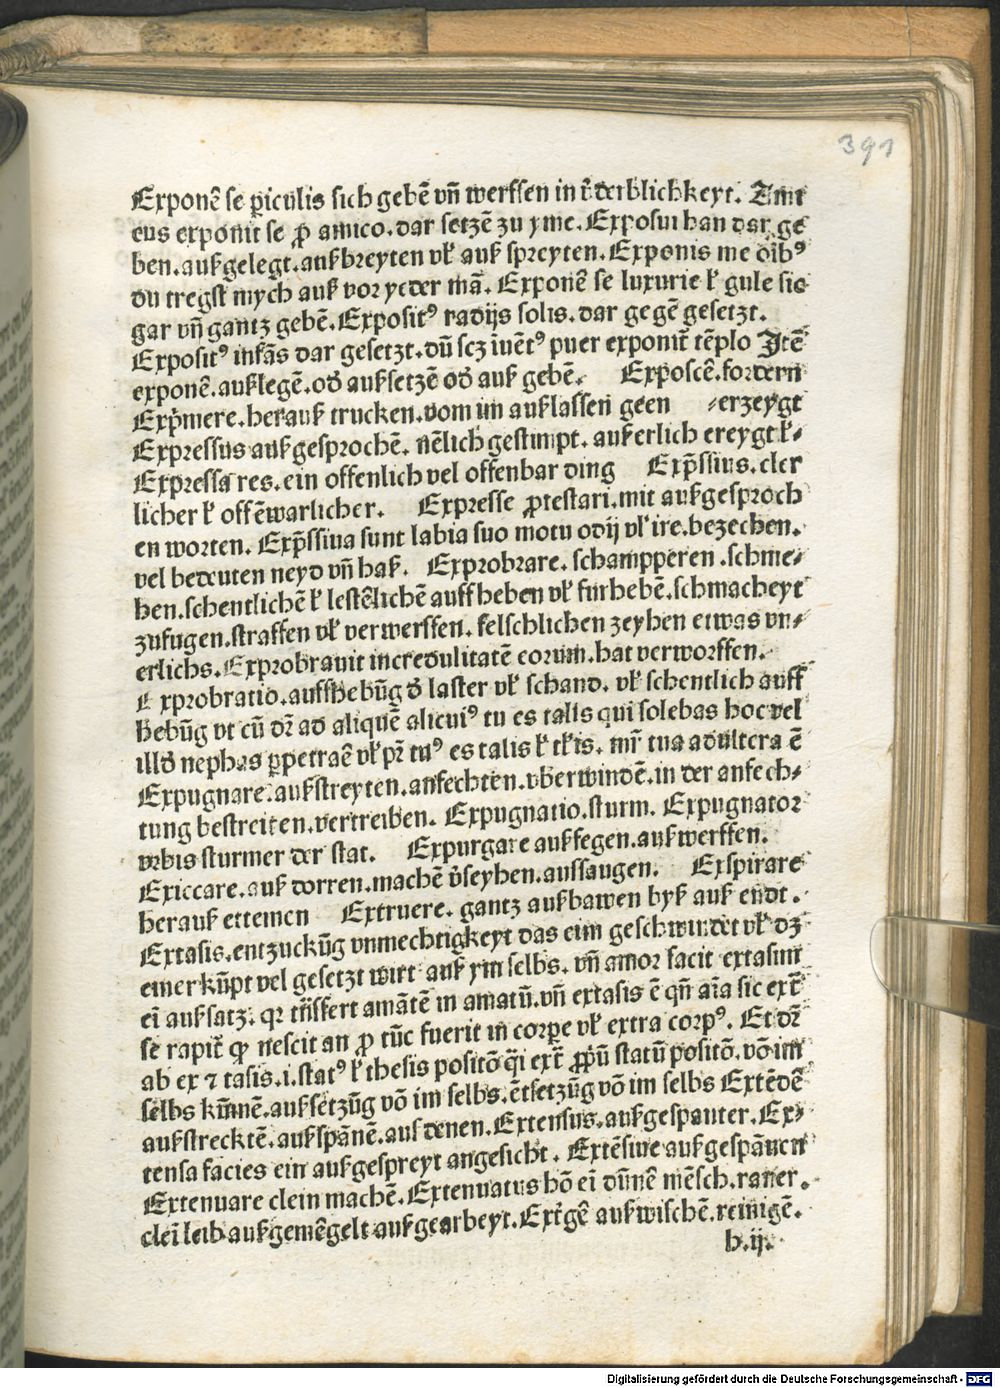 391
Exponē se ꝑiculis sich gebē vn̄ werffen in v̄derblichkeyt. Amī
cus exponit se ꝓ amico. dar setzē zu yme. Exposui han dar ge
ben. auß gelegt. außbreyten vł auß spreyten. Exponis me oīb⁹
du tregst mych auß vor yeder mā. Exponē se luxurie ł gule sic
gar vn̄ gantz gebē. Exposit⁹ radijs solis. dar gegē gesetzt.
Exposit⁹ infās dar gesetzt. dū scz īuēt⁹ puer exponit̄ tēplo Itē
exponē. außlegē. od̄ außsetzē od̄ auß gebē. Exposcē. fordern
Exp̄mere. herauß trucken. vom un außlassen geen ⸗erzeygt
Expressus außgesprochē. nēlich gestimpt. außerlich ereygt ł⸗
Expressa res. ein offenlich vel offenbar ding Exp̄ssius. cler
licher ł offēwarlicher. Expresse ꝓtestari. mit außgesproch
en worten. Exp̄ssiua sunt labia suo motu odij vł ire. bezechen.
vel bedeuten neyd vn̄ haß. Exprobrare. schampperen. schme⸗
hen. schentlichē ł lestēlichē auffheben vł furhebē. schmacheyt
zufugen. straffen vł verwerffen. felschlichen zeyhen etwas vn⸗
erlichs. Exprobrauit incredulitatē eorum. hat verworffen.
Exprobratio. auffhebūg d̄ laster vł schand. vł schentlich auff
hebūg vt cū dr̄ ad aliquē alicui⁹ tu es talis qui solebas hoc vel
illd̄ nephas ꝑpetraē vł pr̄ tu⁹ es talis ł tłis. mr̄ tua adultera ē
Expugnare. außstreyten. anfechten. vberwindē. in der anfech⸗
tung bestreiten. vertreiben. Expugnatio. sturm. Expugnator
vrbis sturmer der stat. Expurgare außfegen. außwerffen.
Exiccare. auß dorren. machē v̄seyhen. aussaugen. Exspirare
herauß ettemen Extruere. gantz außbawen byß auß endt.
Extasis. entzuckūg vnmechtigkeyt das eim geschwindet vł dz
einer kūpt vel gesetzt wirt auß ym selbs. vn̄ amor facit extasim
eī außsatz. qr trāsfert amātē in amatū. vn̄ extasis ē qn̄ aīa sic ext̄
se rapit̄ ꝙ nescit an ꝓ tūc fuerit in corꝑe vł extra corp⁹. Et dr̄
ab ex ⁊ tasis. i. stat⁹ ł thesis positō q̄i ext̄ ꝓpū statū positō. vō im
selbs kūmē. außsetzūg vō im selbs. ētsetzūg vō im selbs Extēdē
außstrecktē. außspānē. auß denen. Extensus. außgespanter. Ex⸗
tensa facies ein außgespreyt angesicht. Extēsiue außgespāuen
Extenuare clein machē. Extenuatus hō eī dūnē mēsch. raner.
cleī leib außgemēgelt außgearbeyt. Ext̄gē außwischē. reinigē.
h. ij.
Digitalisierung gefördert durch die Deutsche Forschungsgemeinschaft - DFG